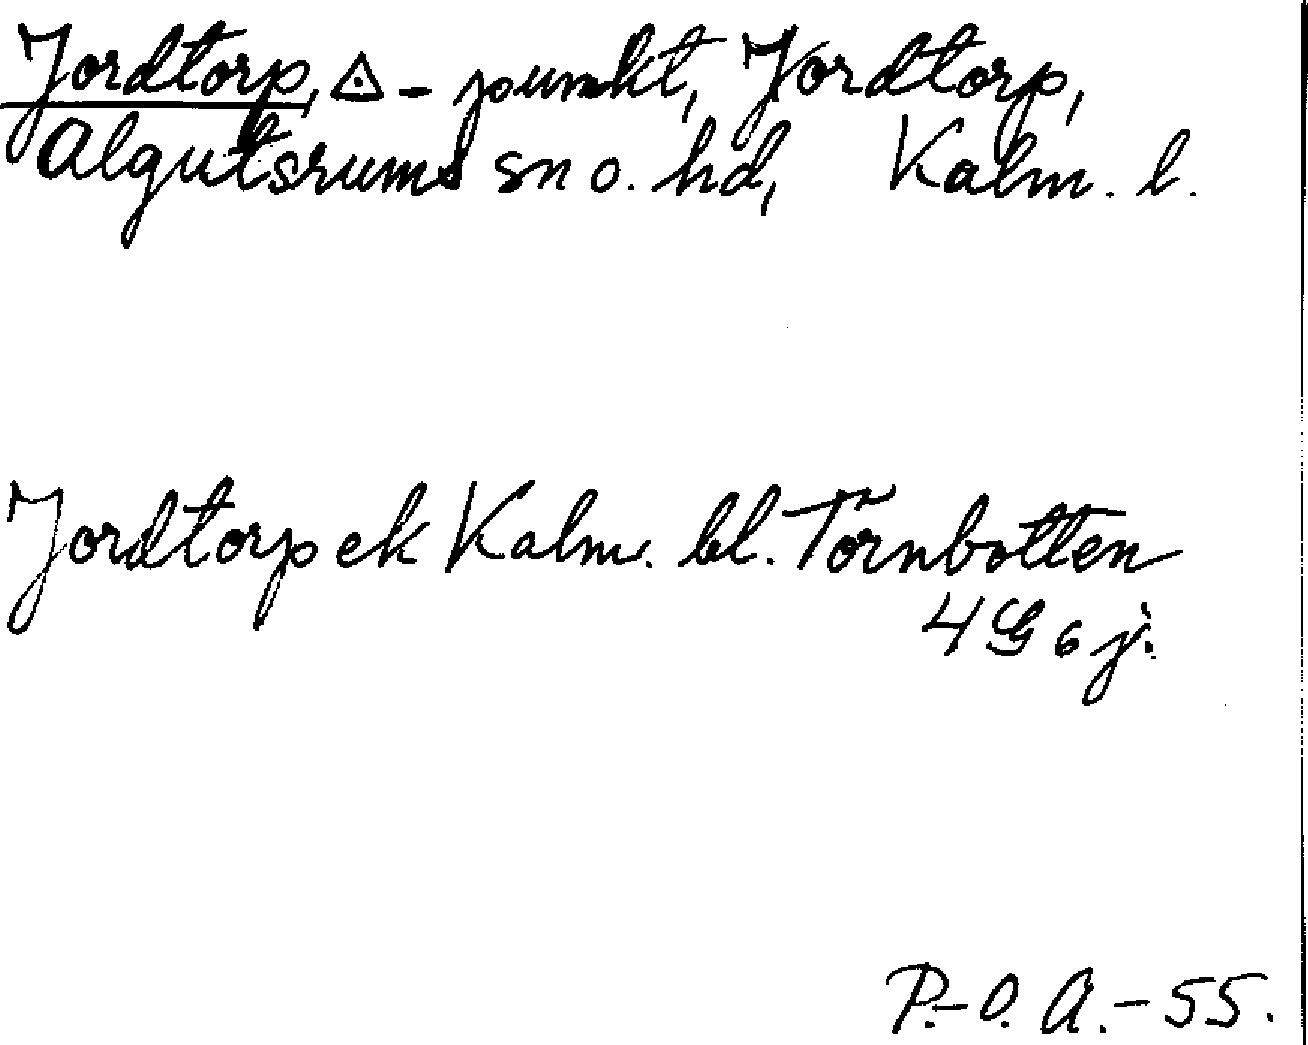 Jordtorp, △ - punkt, Jordtorp,
Algutsrums sn o. hd, Kalm. l.
Jordtorp ek Kalm. bl. Törnbotten
4 G 6 j.
P.-O. A. - 55.